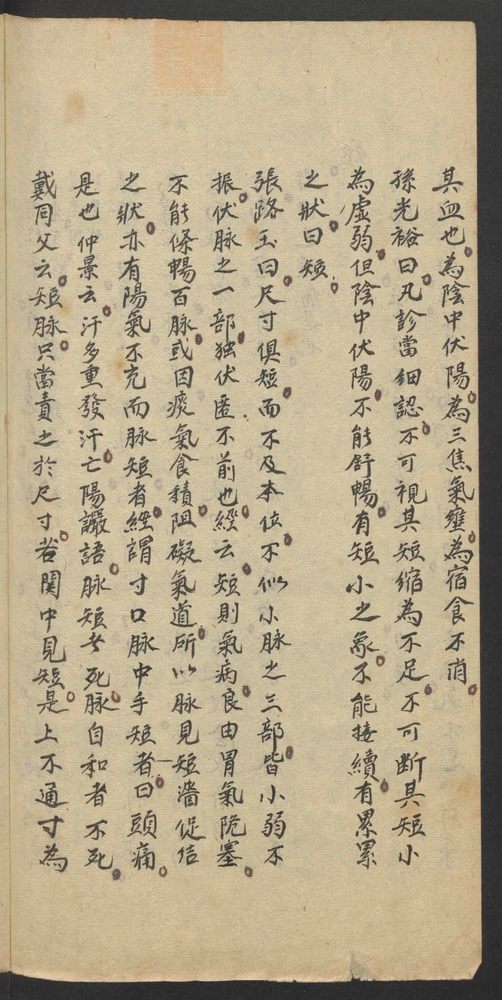 其血也為陰中伏陽為三焦氣壅為宿食不消
孫光裕曰凡診當細認不可視其短縮為不足不可斷其短小
為虛弱但陰中伏陽不能舒暢有短小之象不能接續有累累
之狀曰短
張路玉曰尺寸俱短而不及本位不似小脉之三部皆小弱不
振伏脉之一部独伏匿不前也經云短則氣病良由胃氣阨塞
不能條暢百脉或因痰氣食積阻礙氣道所以脉見短濇促结
之狀亦有陽氣不充而脉短者經謂寸口脉中手短者曰頭痛
是也仲景云汗多重發汗亡陽讝語脉短者死脉自和者不死
戴同父云短脉只當責之於尺寸若関中見短是上不通寸為